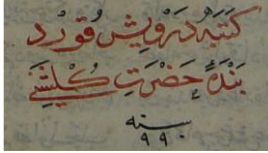 كتبه درويش قورد
بندهٔ حضرت كلشني
سنه ٩٩٠